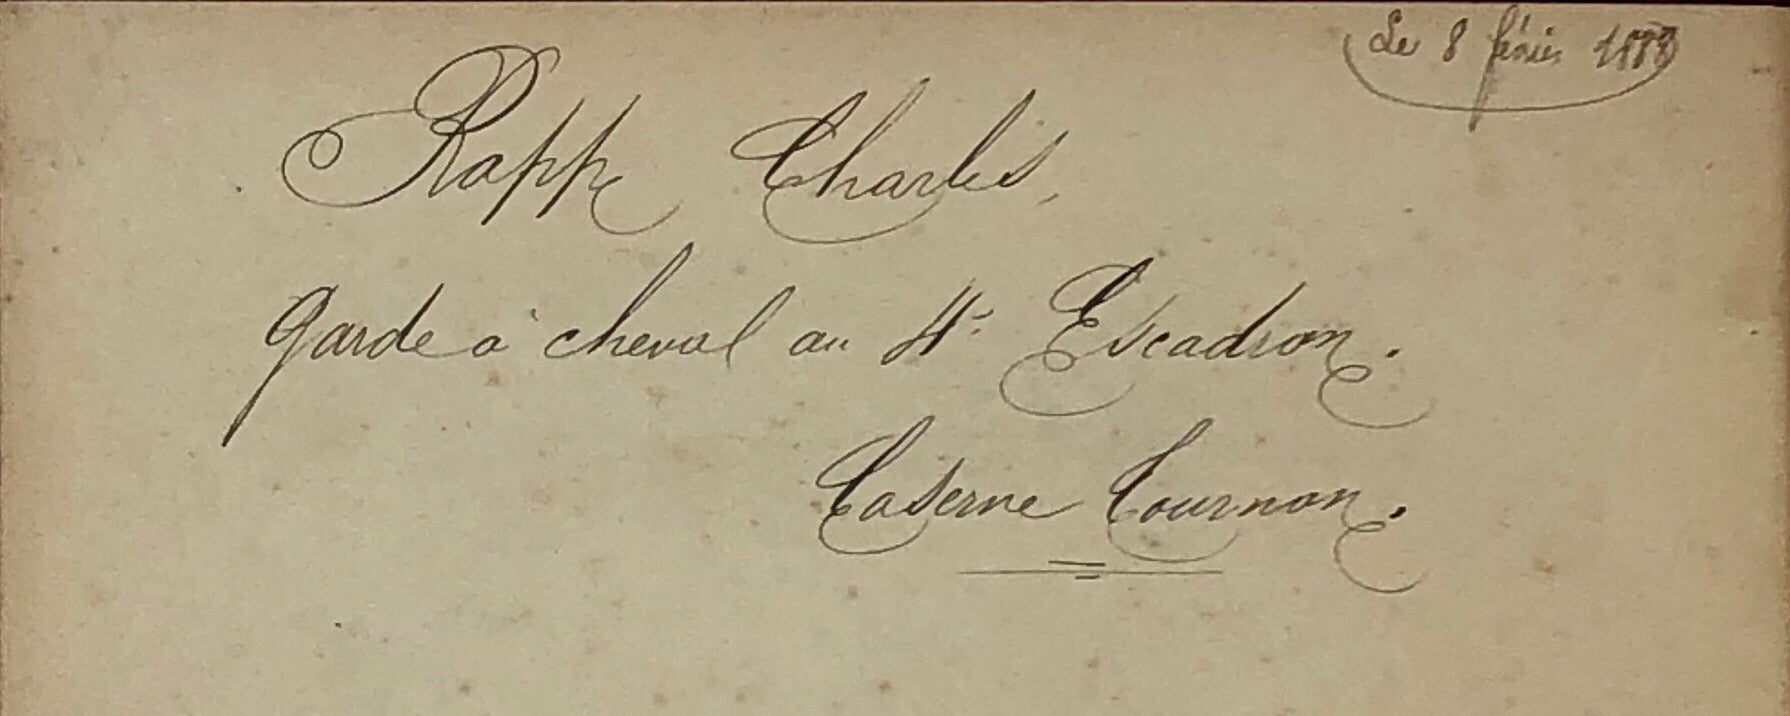 Le 8 février
Rapp Charles,
Garde à cheval au 4e Escadron.
Caserne Tournon.